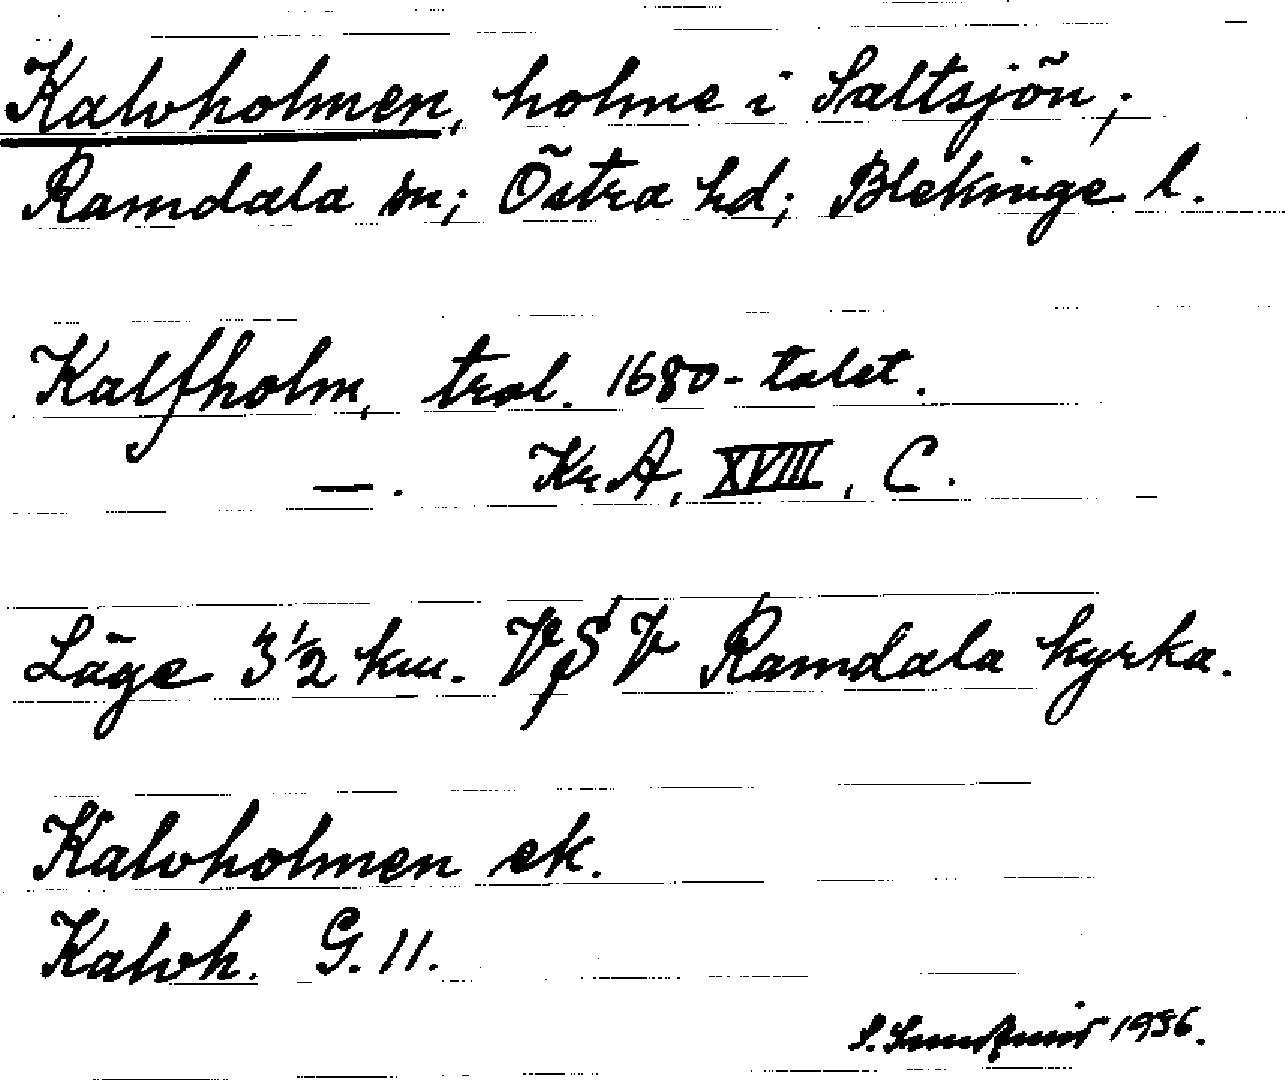 Kalvholmen, holme i Saltsjön;
Ramdala sn; Östra hd; Blekinge l.
Kalfholm, trol. 1680-talet.
—. KrA, XVIII, C.
Läge 3 1/2 km. VSV Ramdala kyrka.
Kalvholmen ek.
Kalvh. G. 11.
S. 1936.